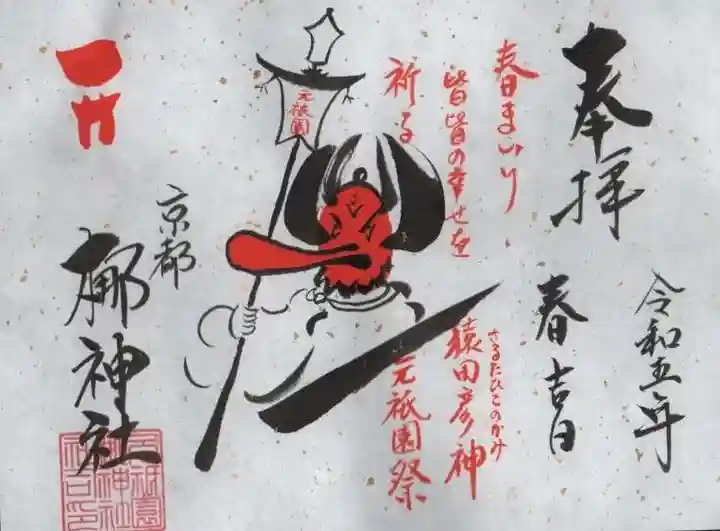 奉拝
令和五年
春吉日
春まいり
皆皆の幸せを
祈る
さるたひこのかみ
猿田彦神
元祇園祭
元祇園
京都
梛神社